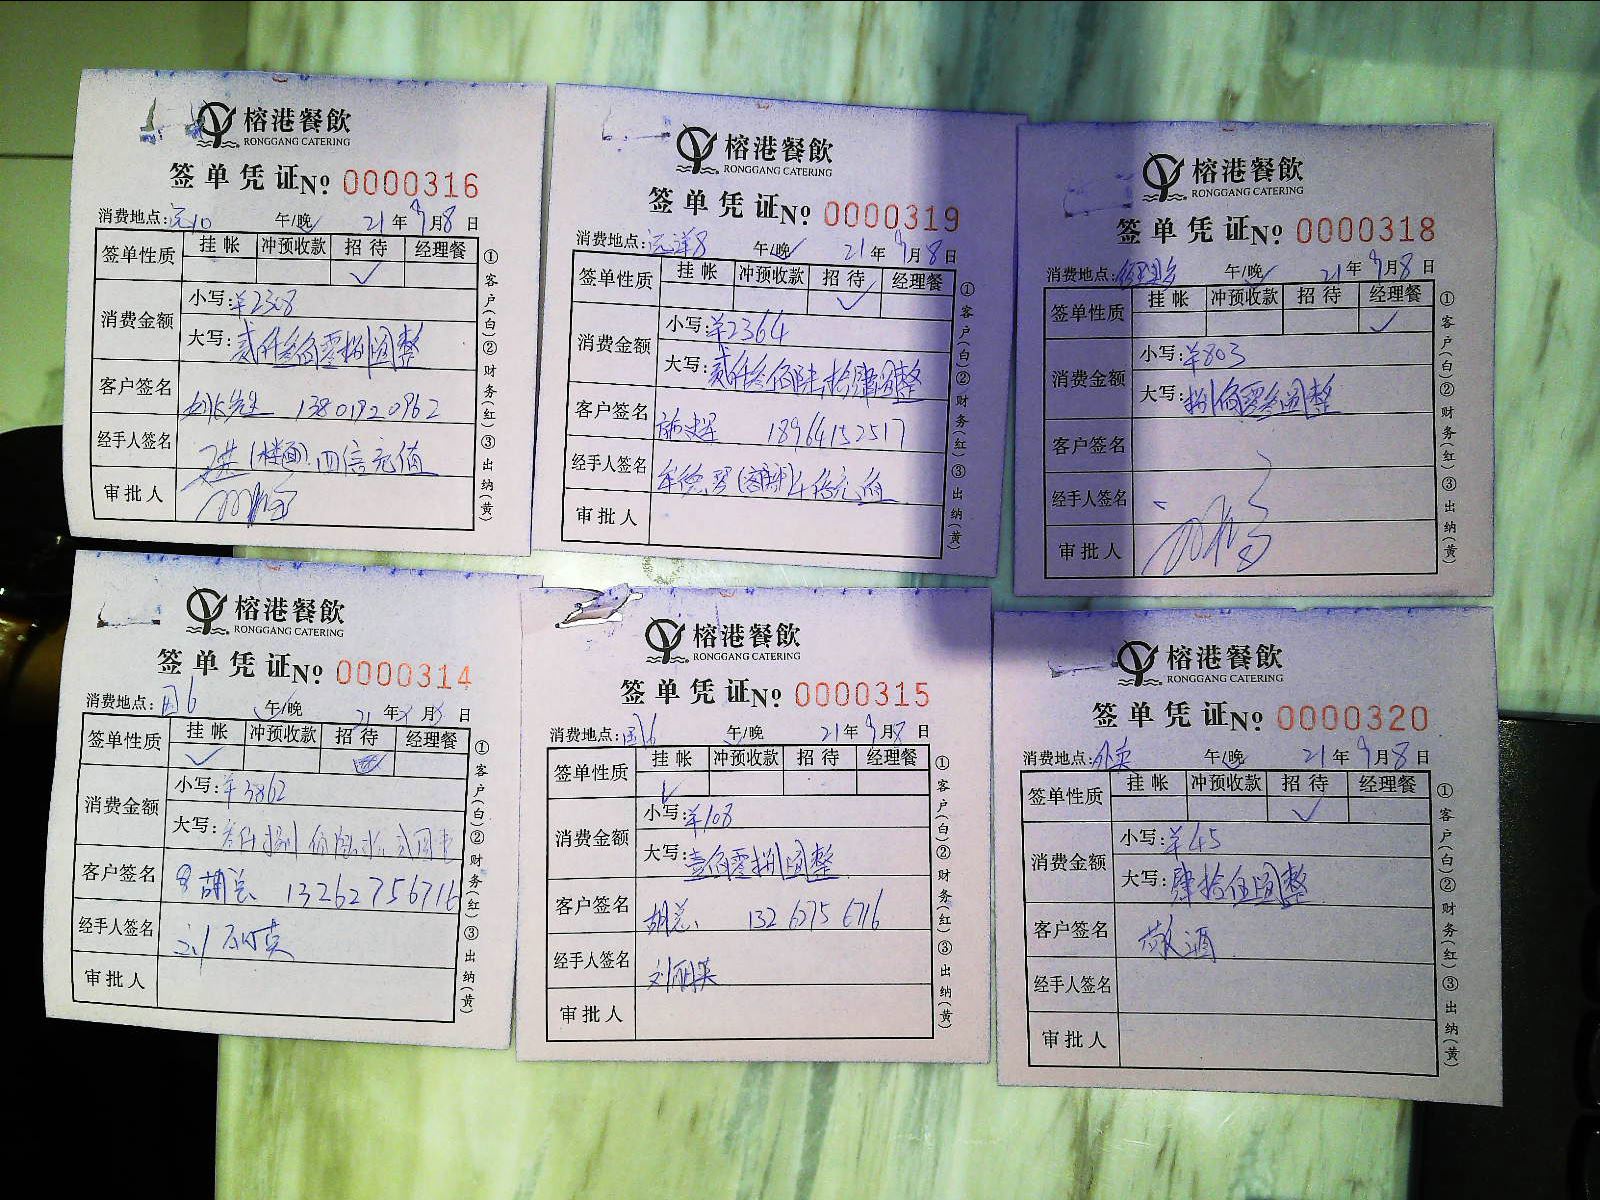 榕港餐飲
RONGGANG CATERING
签单凭证 № 0000316
消费地点:远10 午/晚 21年9月8日
签单性质 挂帐 冲预收款 招待 经理餐
✓
消费金额
小写:¥2308
大写:贰仟叁佰零捌圆整
客户签名 先生 13801920962
经手人签名 (楼面)四倍充值
审批人
①客户(白)②财务(红)③出纳(黄)
榕港餐飲
RONGGANG CATERING
签单凭证 № 0000319
消费地点:远洋8 午/晚 21年9月8日
签单性质 挂帐 冲预收款 招待 经理餐
✓
消费金额
小写:¥2364
大写:贰仟叁佰陆拾肆圆整
客户签名 18964152517
经手人签名 倍充值
审批人
①客户(白)②财务(红)③出纳(黄)
榕港餐飲
RONGGANG CATERING
签单凭证 № 0000318
消费地点: 午/晚 21年9月8日
签单性质 挂帐 冲预收款 招待 经理餐
✓
消费金额
小写:¥803
大写:捌佰零叁圆整
客户签名
经手人签名
审批人
①客户(白)②财务(红)③出纳(黄)
榕港餐飲
RONGGANG CATERING
签单凭证 № 0000314
消费地点:国6 午/晚 21年 月 日
签单性质 挂帐 冲预收款 招待 经理餐
✓
消费金额
小写:¥3862
大写:叁仟捌佰陆拾贰圆整
客户签名 胡总 13262756716
经手人签名 刘丽英
审批人
①客户(白)②财务(红)③出纳(黄)
榕港餐飲
RONGGANG CATERING
签单凭证 № 0000315
消费地点:国6 午/晚 21年9月8日
签单性质 挂帐 冲预收款 招待 经理餐
✓
消费金额
小写:¥108
大写:壹佰零捌圆整
客户签名 胡总 132 6275 6716
经手人签名 刘丽英
审批人
①客户(白)②财务(红)③出纳(黄)
榕港餐飲
RONGGANG CATERING
签单凭证 № 0000320
消费地点:外卖 午/晚 21年9月8日
签单性质 挂帐 冲预收款 招待 经理餐
✓
消费金额
小写:¥45
大写:肆拾伍圆整
客户签名 敬酒
经手人签名
审批人
①客户(白)②财务(红)③出纳(黄)